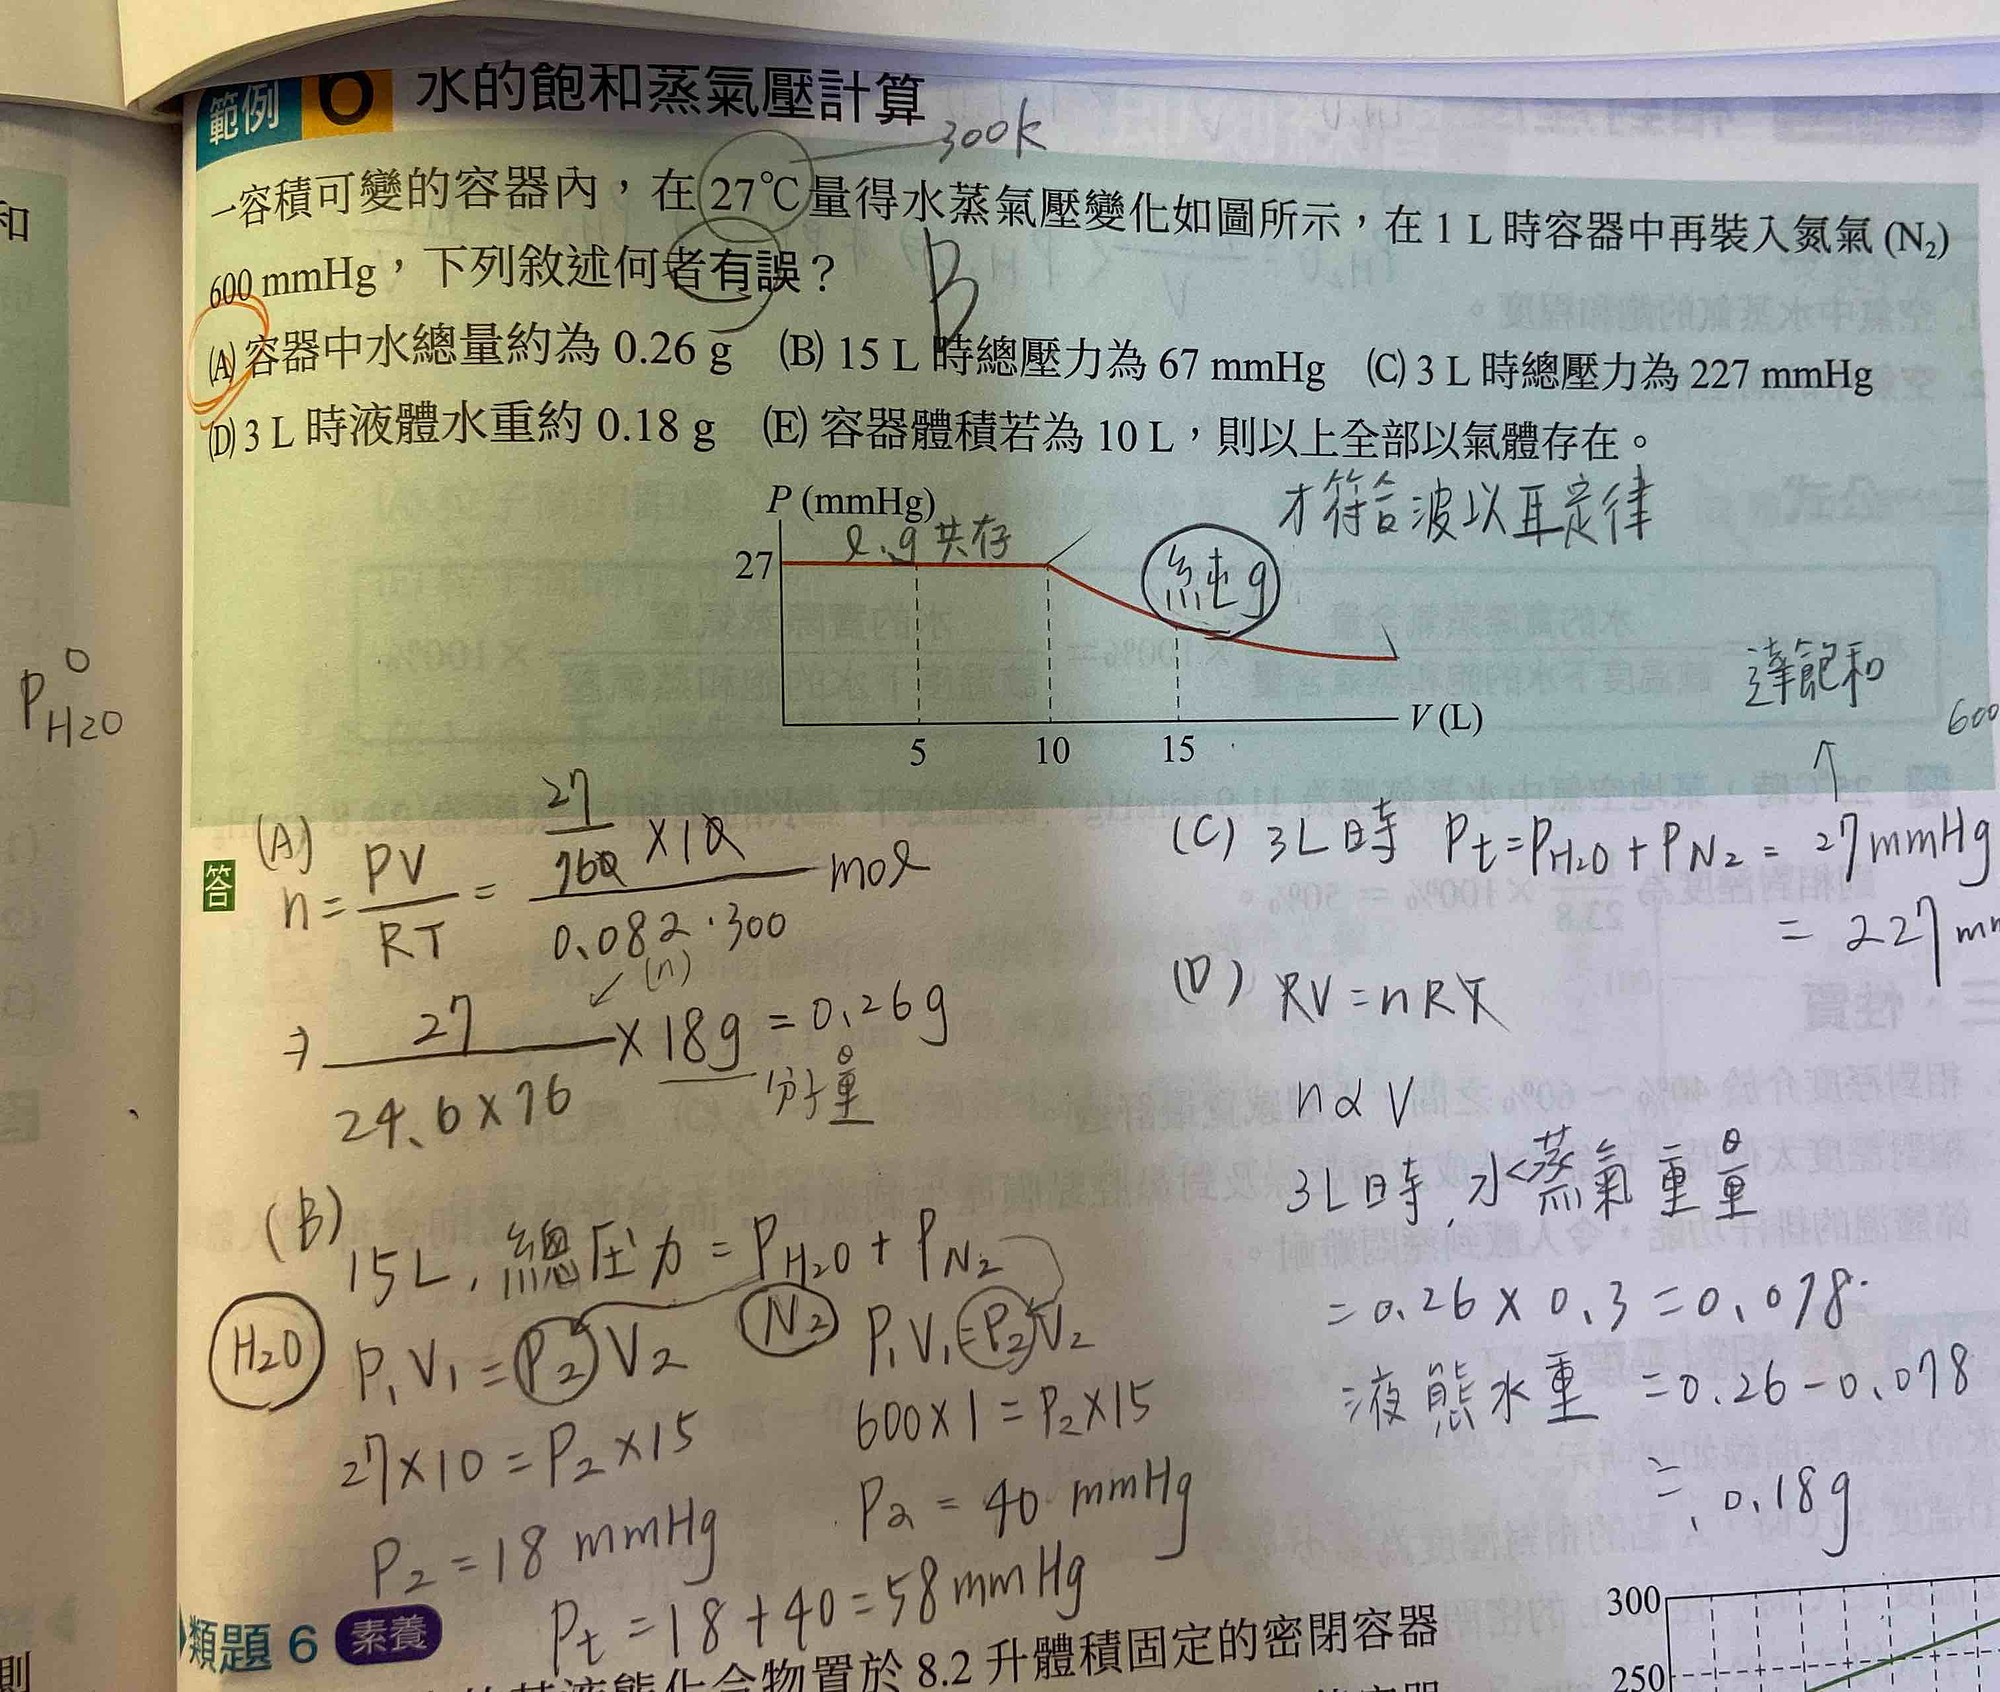 和
範例 6 水的飽和蒸氣壓計算
300k
一容積可變的容器內，在 27℃ 量得水蒸氣壓變化如圖所示，在 1 L 時容器中再裝入氮氣 (N₂)
600 mmHg，下列敘述何者有誤？ B
(A) 容器中水總量約為 0.26 g (B) 15 L 時總壓力為 67 mmHg (C) 3 L 時總壓力為 227 mmHg
(D) 3 L 時液體水重約 0.18 g (E) 容器體積若為 10 L，則以上全部以氣體存在。
才符合波以耳定律
P (mmHg)
l、g 共存
27
純g
達飽和
P⁰H2O
600
V (L)
5 10 15
答
(A) n = PV/RT = (27/760 × 10)/(0.082·300) mol
(n)
⇒ 27/(24.6×76) × 18g = 0.26g
分子量
(B) 15L，總压力 = PH₂O + PN₂
H₂O P₁V₁ = P₂V₂
27×10 = P₂×15
P₂ = 18 mmHg
N₂ P₁V₁ = P₂V₂
600×1 = P₂×15
P₂ = 40 mmHg
Pt = 18 + 40 = 58 mmHg
(C) 3L時 Pt = PH₂O + PN₂ = 27 mmHg
= 227 mm
(D) PV = nRT
n∝V
3L時，水蒸氣重量
= 0.26 × 0.3 = 0.078
液態水重 = 0.26 - 0.078
≒ 0.18g
類題 6 素養
液態化合物置於 8.2 升體積固定的密閉容器
300
250
則